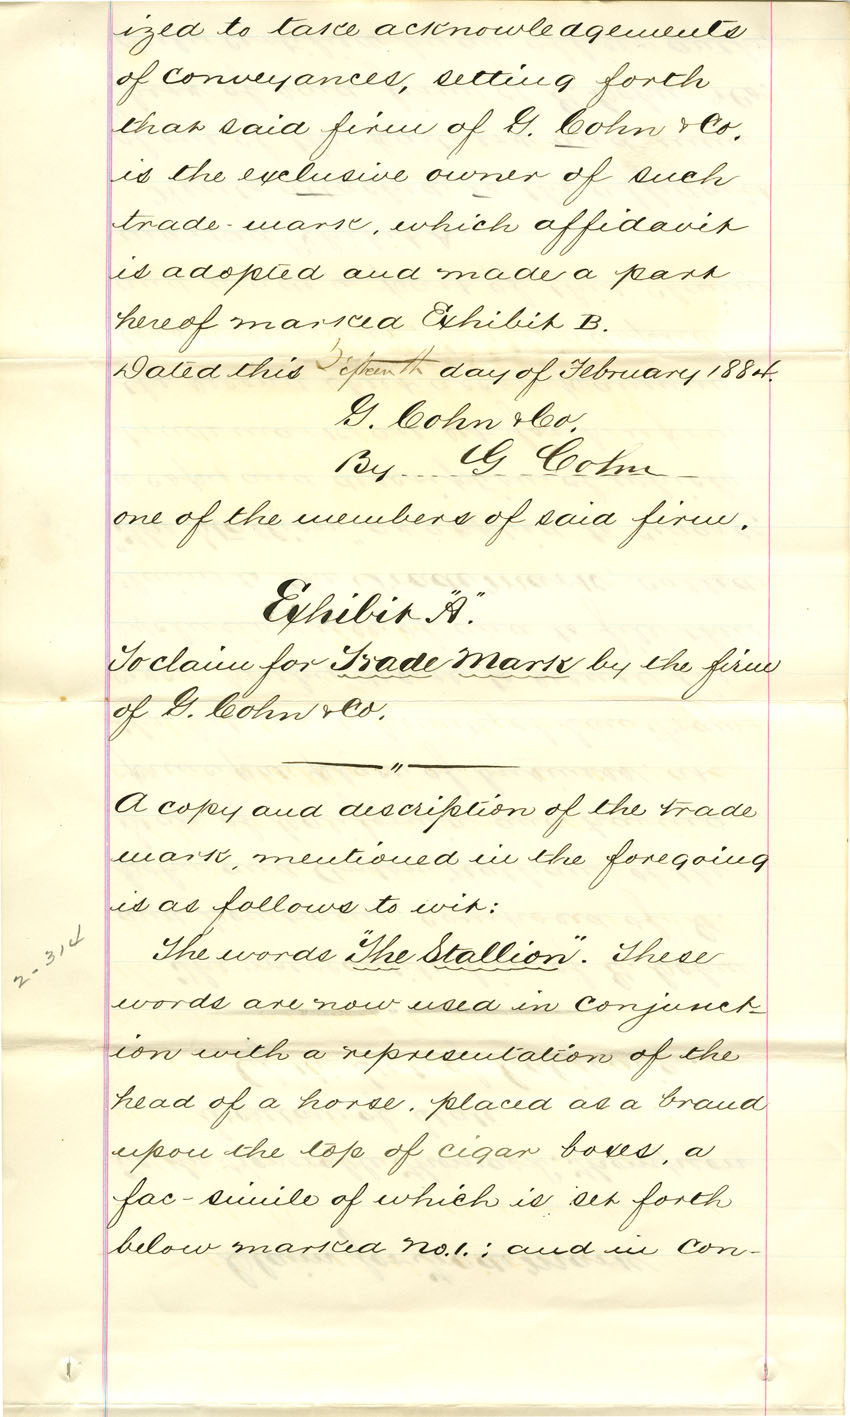 ized to take acknowledgements
of conveyances, setting forth
that said firm of G. Cohn & Co.
is the exclusive owner of such
trade-mark, which affidavit
is adopted and made a part
hereof marked Exhibit B.
Dated this Fifteenth day of February 1884.
G. Cohn & Co.
By G Cohn
one of the members of said firm.
Exhibit "A".
To claim for Trade Mark by the firm
of G. Cohn & Co.
A copy and description of the trade
mark, mentioned in the foregoing
is as follows to wit:
The words "The Stallion". These
words are now used in conjunct-
ion with a representation of the
head of a horse, placed as a brand
upon the top of cigar boxes, a
fac-simile of which is set forth
below marked No. 1.; and in con-
2-314